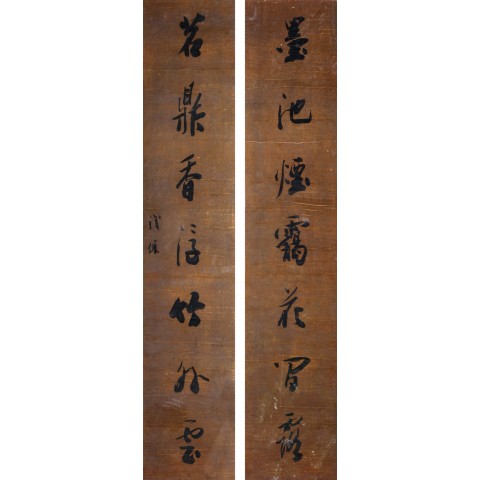 墨池煙靄花間露
茗鼎香浮竹外雲